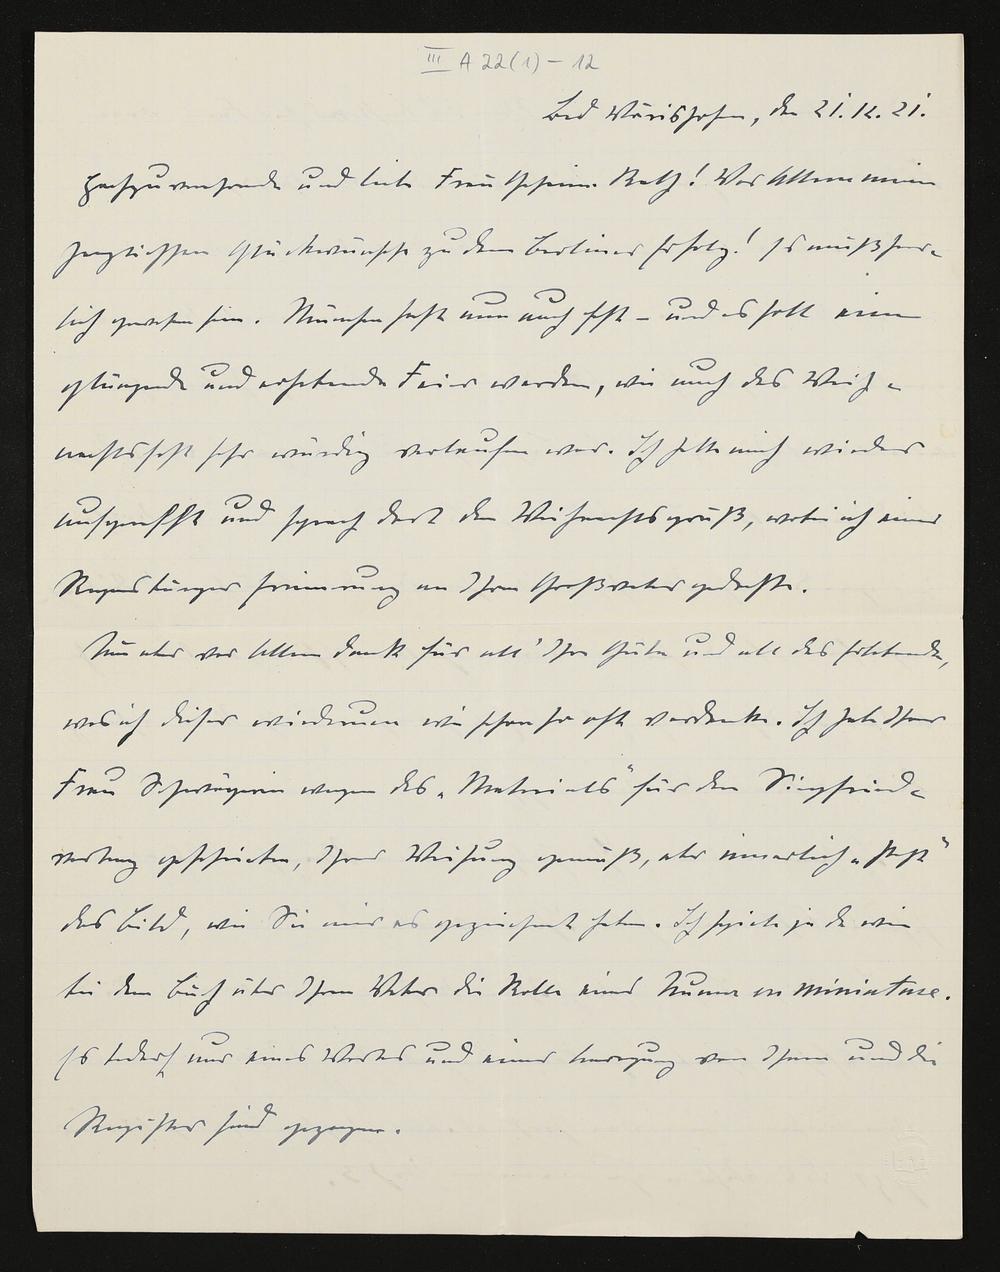 III A 22(1) – 12
Bad Wörishofen, den 21.12.21.
Hochzuverehrende und liebe Frau Geheim-Rath! Vor Allem meine
herzlichsten Glückwünsche zu dem Berliner Erfolg! Es muß herr-
lich gewesen sein. München hofft nun auch fest – und es soll eine
glänzende und erhebende Feier werden, wie auch das Weih-
nachtsfest sehr würdig verlaufen war. Ich hatte mich wieder
aufgerafft und sprach dort den Weihnachtsgruß, wobei ich einer
Regensburger Erinnerung an Ihren Großvater gedachte.
Nun aber vor Allem Dank für all' Ihre Güte und all das Erlebende,
was ich dieser wiederum wie schon so oft verdanke. Ich habe Ihrer
Frau Schwägerin wegen des „Materials" für den Siegfried-
vortrag geschrieben, Ihrer Weisung gemäß, aber innerlich „steht"
das Bild, wie Sie mir es gezeichnet haben. Ich spiele ja da wie
bei dem Buch über Ihren Vater die Rolle eines Numa en miniature.
Es bedarf nur eines Wortes und einer Anregung von Ihnen und die
Register sind gezogen.